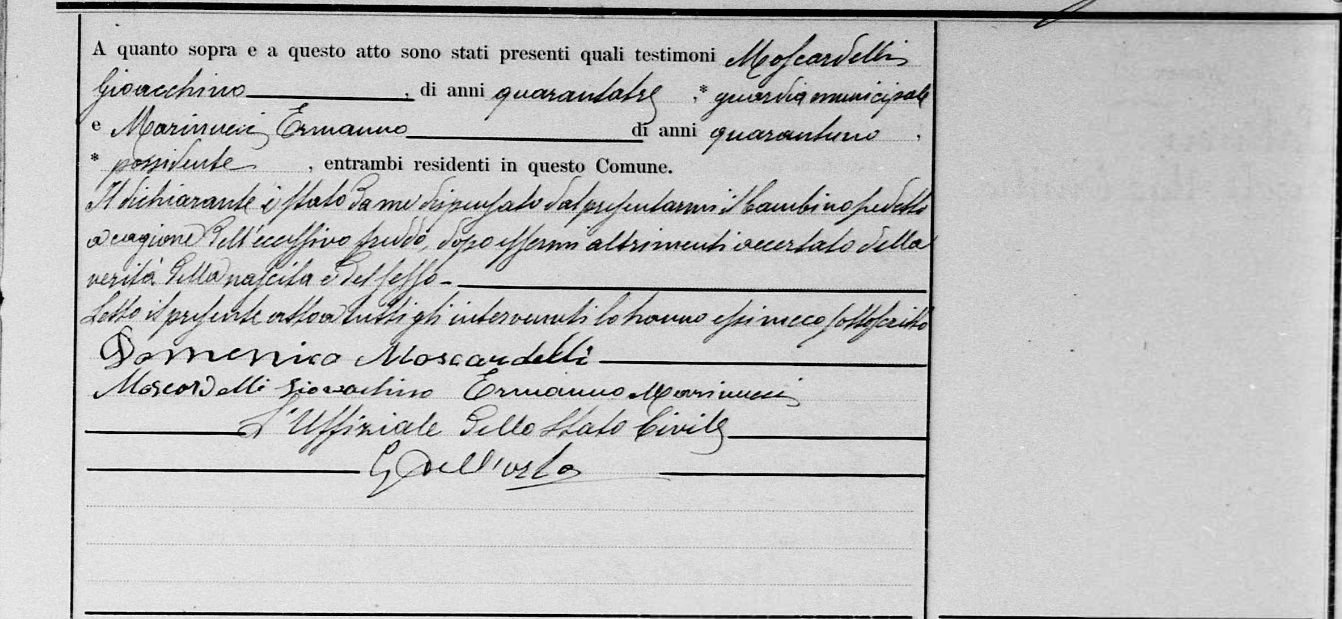 A quanto sopra e a questo atto sono stati presenti quali testimoni Moscardelli
Gioacchino, di anni quarantatre, * guardia municipale
e Marinucci Ermanno di anni quarantuno,
* possidente, entrambi residenti in questo Comune.
Il dichiarante è stato da me dispensato dal presentarmi il bambino predetto
a cagione dell'eccessivo freddo, dopo essermi altrimenti accertato della
verità della nascita e del sesso -
Letto il presente atto a tutti gli intervenuti lo hanno essi meco sottoscritto
Domenico Moscardelli
Moscardelli Giovachino Ermanno Marinucci
L'Uffiziale dello Stato Civile
G Dell'orto